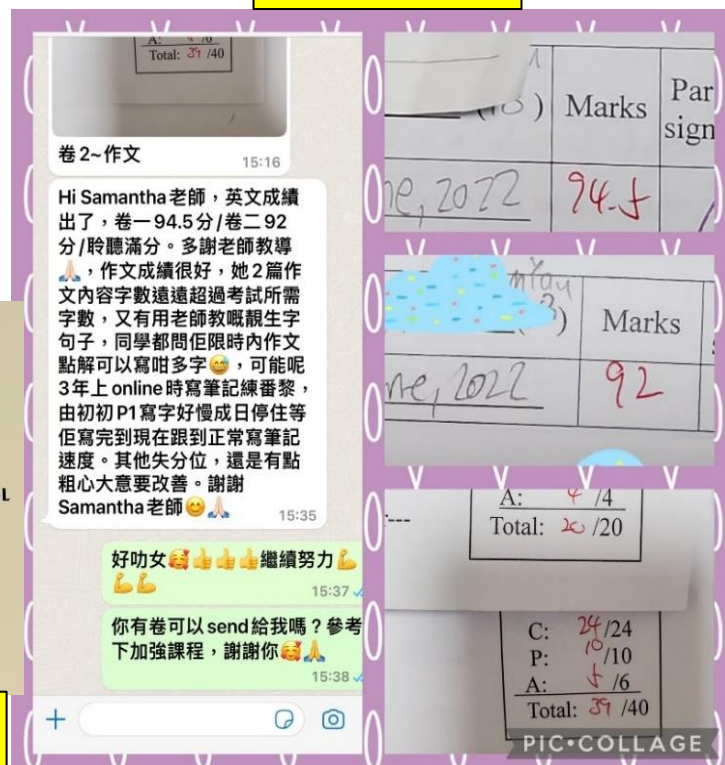 A: /6
Total: 39 /40
卷2~作文
15:16
Hi Samantha老師，英文成績
出了，卷一94.5分/卷二92
分/聆聽滿分。多謝老師教導
🙏🏻，作文成績很好，她2篇作
文內容字數遠遠超過考試所需
字數，又有用老師教嘅靚生字
句子，同學都問佢限時內作文
點解可以寫咁多字😅，可能呢
3年上online時寫筆記練番黎，
由初初P1寫字好慢成日停住等
佢寫完到現在跟到正常寫筆記
速度。其他失分位，還是有點
粗心大意要改善。謝謝
Samantha老師😊🙏🏻
15:35
好叻女🥰👍👍👍繼續努力💪
💪💪
15:37
你有卷可以send給我嗎？參考
下加強課程，謝謝你🥰🙏
15:38
Marks
Par
sign
ne, 2022
94.5
Marks
ne, 2022
92
A: 4 /4
Total: 20 /20
C: 24 /24
P: 10 /10
A: 5 /6
Total: 39 /40
PIC•COLLAGE